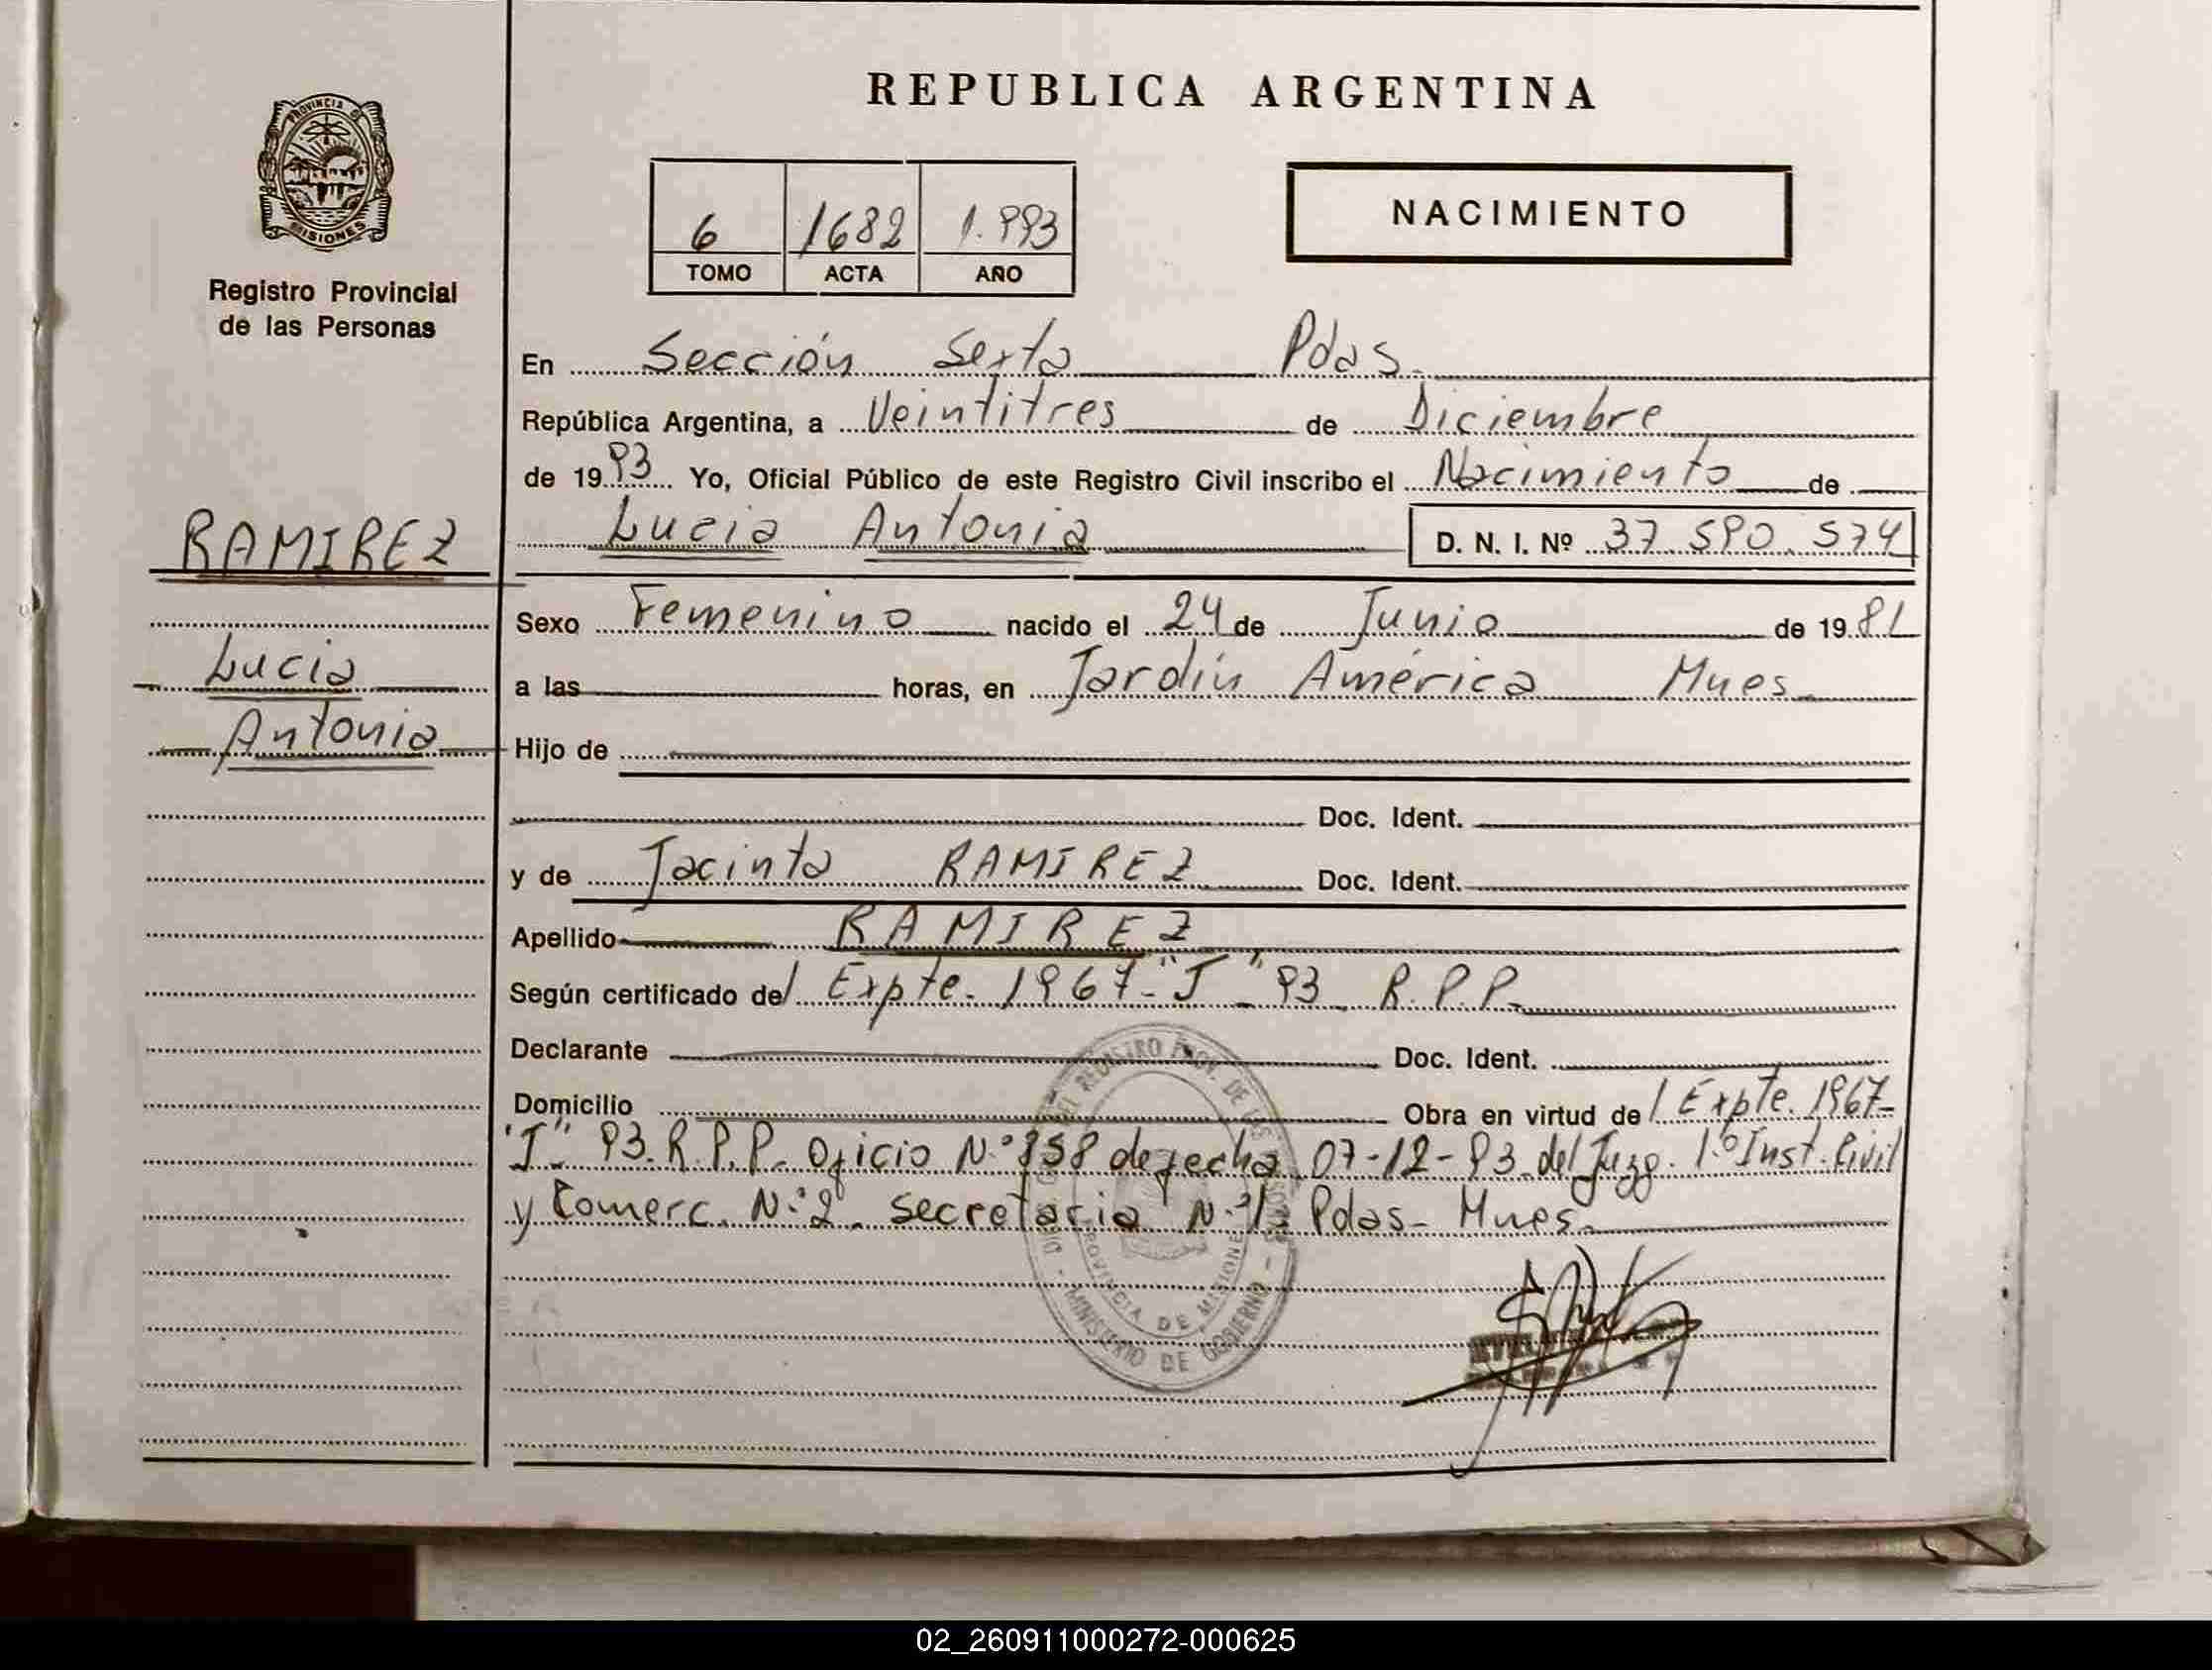 REPUBLICA ARGENTINA
PROVINCIA DE
MISIONES
Registro Provincial
de las Personas
6 1682 1.993
TOMO ACTA AÑO
NACIMIENTO
En Sección Sexta Pdas.
República Argentina, a Veintitres de Diciembre
de 1993 Yo, Oficial Público de este Registro Civil inscribo el Nacimiento de
RAMIREZ
Lucia Antonia D. N. I. Nº 37.590.574
Sexo Femenino nacido el 24 de Junio de 1981
Lucia
a las horas, en Jardín América Mnes.
Antonia
Hijo de
Doc. Ident.
y de Jacinta RAMIREZ Doc. Ident.
Apellido RAMIREZ
Según certificado del Expte. 1967-"J"-93 R.P.P.
Declarante Doc. Ident.
Domicilio Obra en virtud del Expte. 1967-
"J" 93. R.P.P. Oficio N:º 858 de fecha 07-12-93. del Juzg. 1.º Inst. Civil
y Comerc. N:º 2. Secretaria N:º 1. Pdas- Mnes.
PROVINCIA DE MISIONES
MINISTERIO DE GOBIERNO
02_260911000272-000625